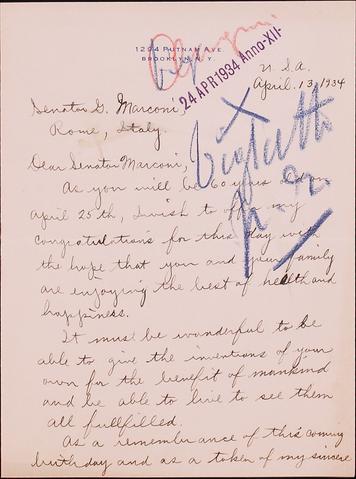 1294 PUTNAM AVE
BROOKLYN, N.Y.
24 APR 1934 Anno XII
U.S.A.
April. 13, 1934
Senator G. Marconi,
Rome, Italy.
Dear Senator Marconi,
As you will be 60 years old on
April 25th, I wish to offer my
congratulations for this day with
the hope that you and your family
are enjoying the best of health and
happiness.
It must be wonderful to be
able to give the inventions of your
own for the benefit of mankind
and be able to live to see them
all fullfilled.
As a remembrance of this coming
birthday and as a token of my sincere